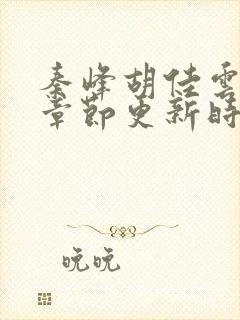 秦峰胡佳雲
章節更新時
晚晚